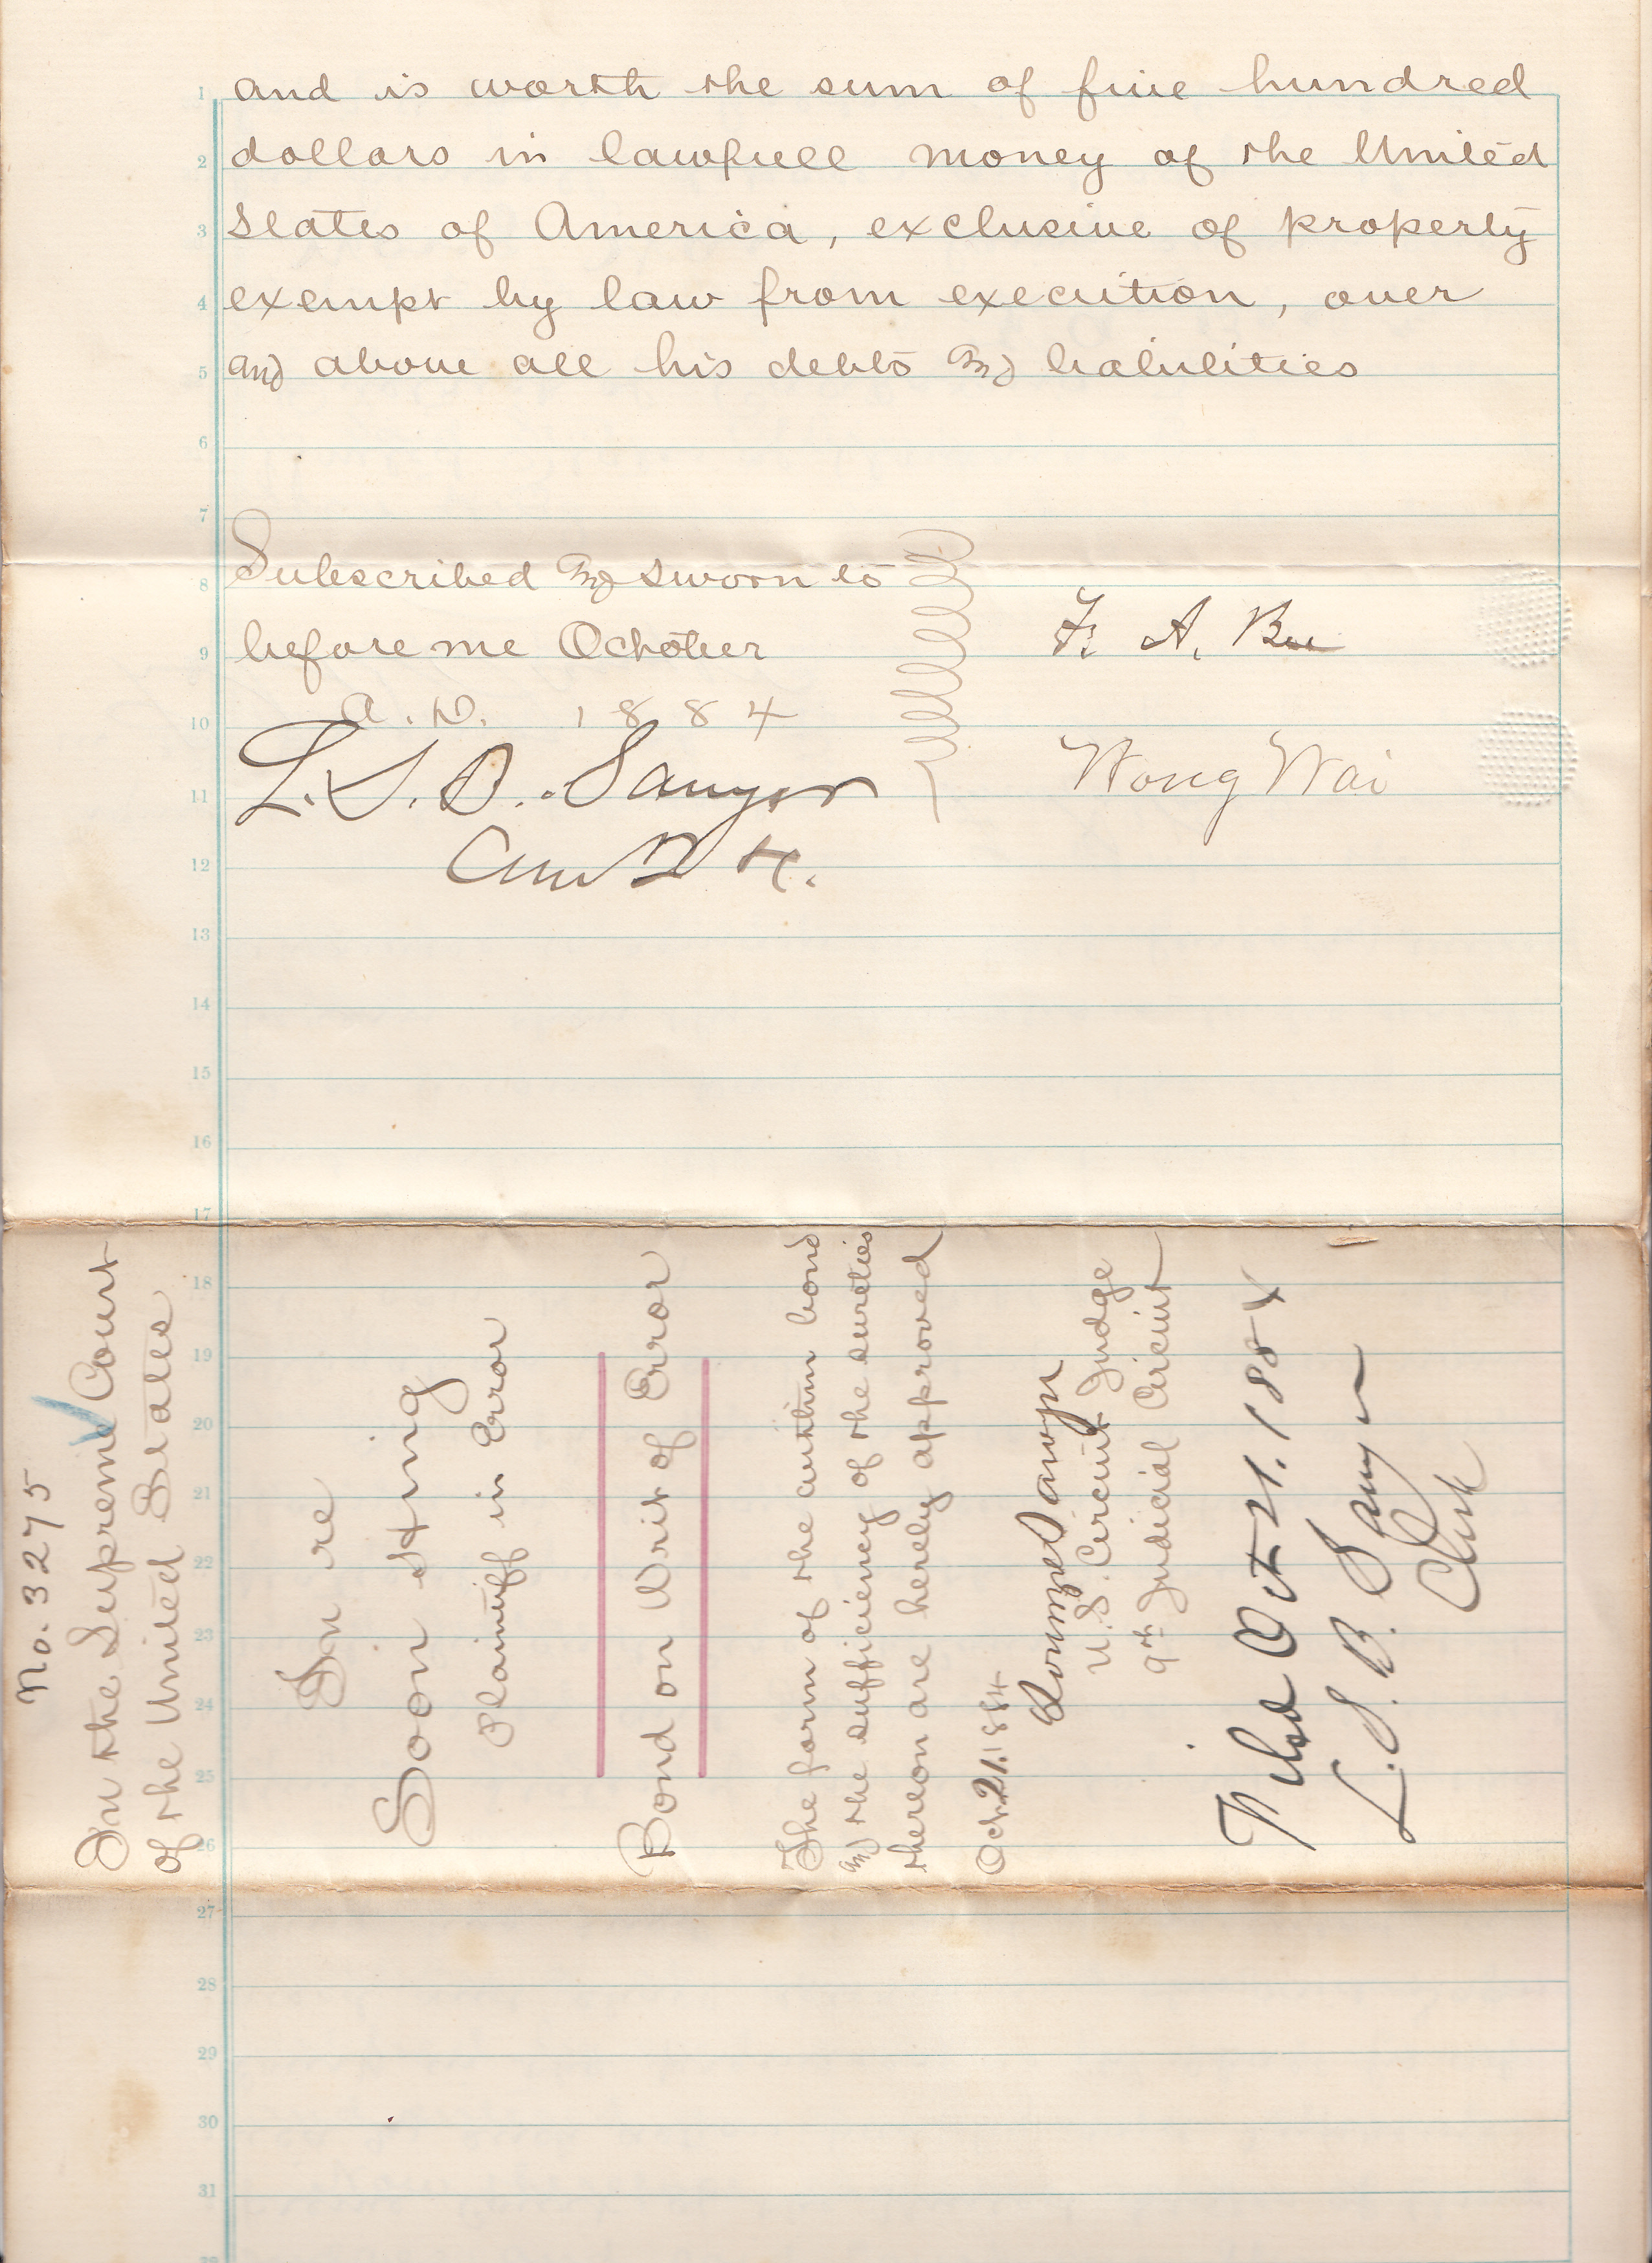 and is worth the sum of five hundred
dollars in lawfull money of the United
States of America, exclusive of property
exempt by law from execution, over
and above all his debts and liabilities
Subscribed and sworn to
before me October
A.D. 1884
L. S. B. Sawyer
F. A. Bee
Wong Wai
No. 3275
In the Supreme Court
of the United States
In re
Soon Hing
Plaintiff in Error
Bond on Writ of Error
The form of the within bond
and the sufficiency of the sureties
thereon are hereby approved
Oct. 21. 1884
Lorenzo Sawyer
U.S. Circuit Judge
9th Judicial Circuit
Filed Oct 21. 1884
L. S. B. Sawyer
Clerk
1
2
3
4
5
6
7
8
9
10
11
12
13
14
15
16
17
18
19
20
21
22
23
24
25
26
27
28
29
30
31